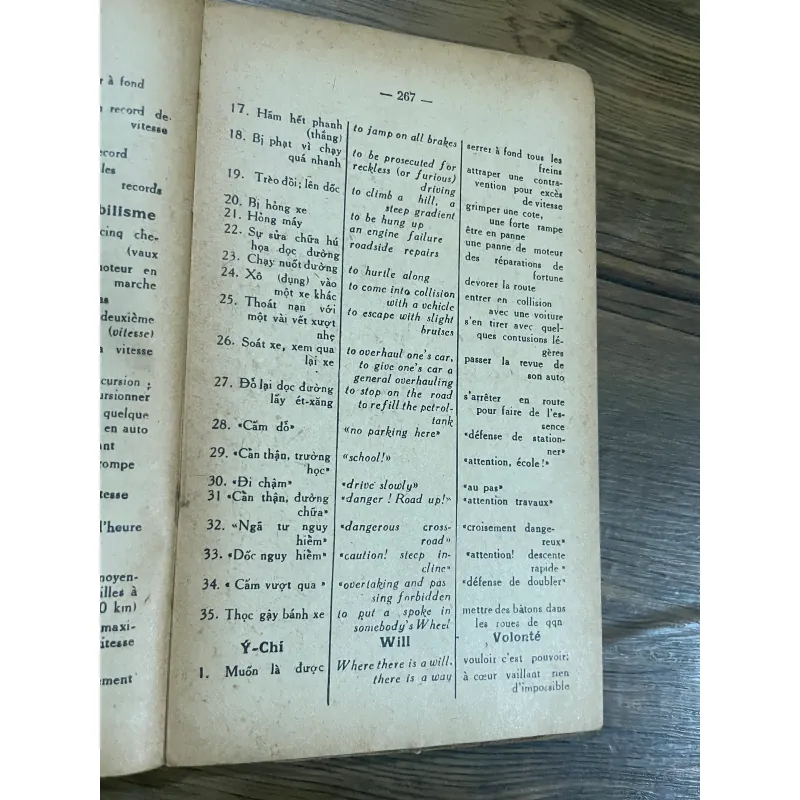 r à fond
record de-
vitesse
record
les
records
bilisme
cinq che-
(vaux
moteur en
marche
deuxième
(vitesse)
vitesse
cursion ;
ursionner
quelque
en auto
ant
rompe
itesse
l'heure
moyen-
illes à
0 km)
maxi-
itesse
ement
— 267 —
17. Hãm hết phanh
(thắng)
18. Bị phạt vì chạy
quá nhanh
19. Trèo đồi; lên dốc
20. Bị hỏng xe
21. Hỏng máy
22. Sự sửa chữa hú
họa dọc đường
23. Chạy nuốt đường
24. Xô (đụng) vào
một xe khác
25. Thoát nạn với
một vài vết xượt
nhẹ
26. Soát xe, xem qua
lại xe
27. Đỗ lại dọc đường
lấy ét-xăng
28. «Cấm đỗ»
29. «Cẩn thận, trường
học»
30. «Đi chậm»
31 «Cẩn thận, đường
chữa»
32. «Ngã tư nguy
hiểm»
33. «Dốc nguy hiểm»
34. « Cấm vượt qua »
35. Thọc gậy bánh xe
Ý-Chí
1. Muốn là được
to jamp on all brakes
to be prosecuted for
reckless (or furious)
driving
to climb a hill, a
steep gradient
to be hung up
an engine failure
roadside repairs
to hurtle along
to come into collision
with a vehicle
to escape with slight
bruises
to overhaul one's car,
to give one's car a
general overhauling
to stop on the road
to refill the petrol-
tank
«no parking here»
«school!»
«drive slowly»
«danger ! Road up!»
«dangerous cross-
road»
«caution! steep in-
cline»
«overtaking and pas
sing forbidden
to put a spoke in
somebody's Wheel
Will
Where there is a will,
there is a way
serrer à fond tous les
freins
attraper une contra-
vention pour excès
de vitesse
grimper une côte,
une forte rampe
être en panne
une panne de moteur
des réparations de
fortune
devorer la route
entrer en collision
avec une voiture
s'en tirer avec quel-
ques contusions lé-
gères
passer la revue de
son auto
s'arrêter en route
pour faire de l'es-
sence
«défense de station-
ner»
«attention, école !»
«au pas»
«attention travaux»
«croisement dange-
reux»
«attention! descente
rapide »
«défense de doubler»
mettre des bâtons dans
les roues de qqn
Volonté
vouloir c'est pouvoir;
à cœur vaillant rien
d'impossible